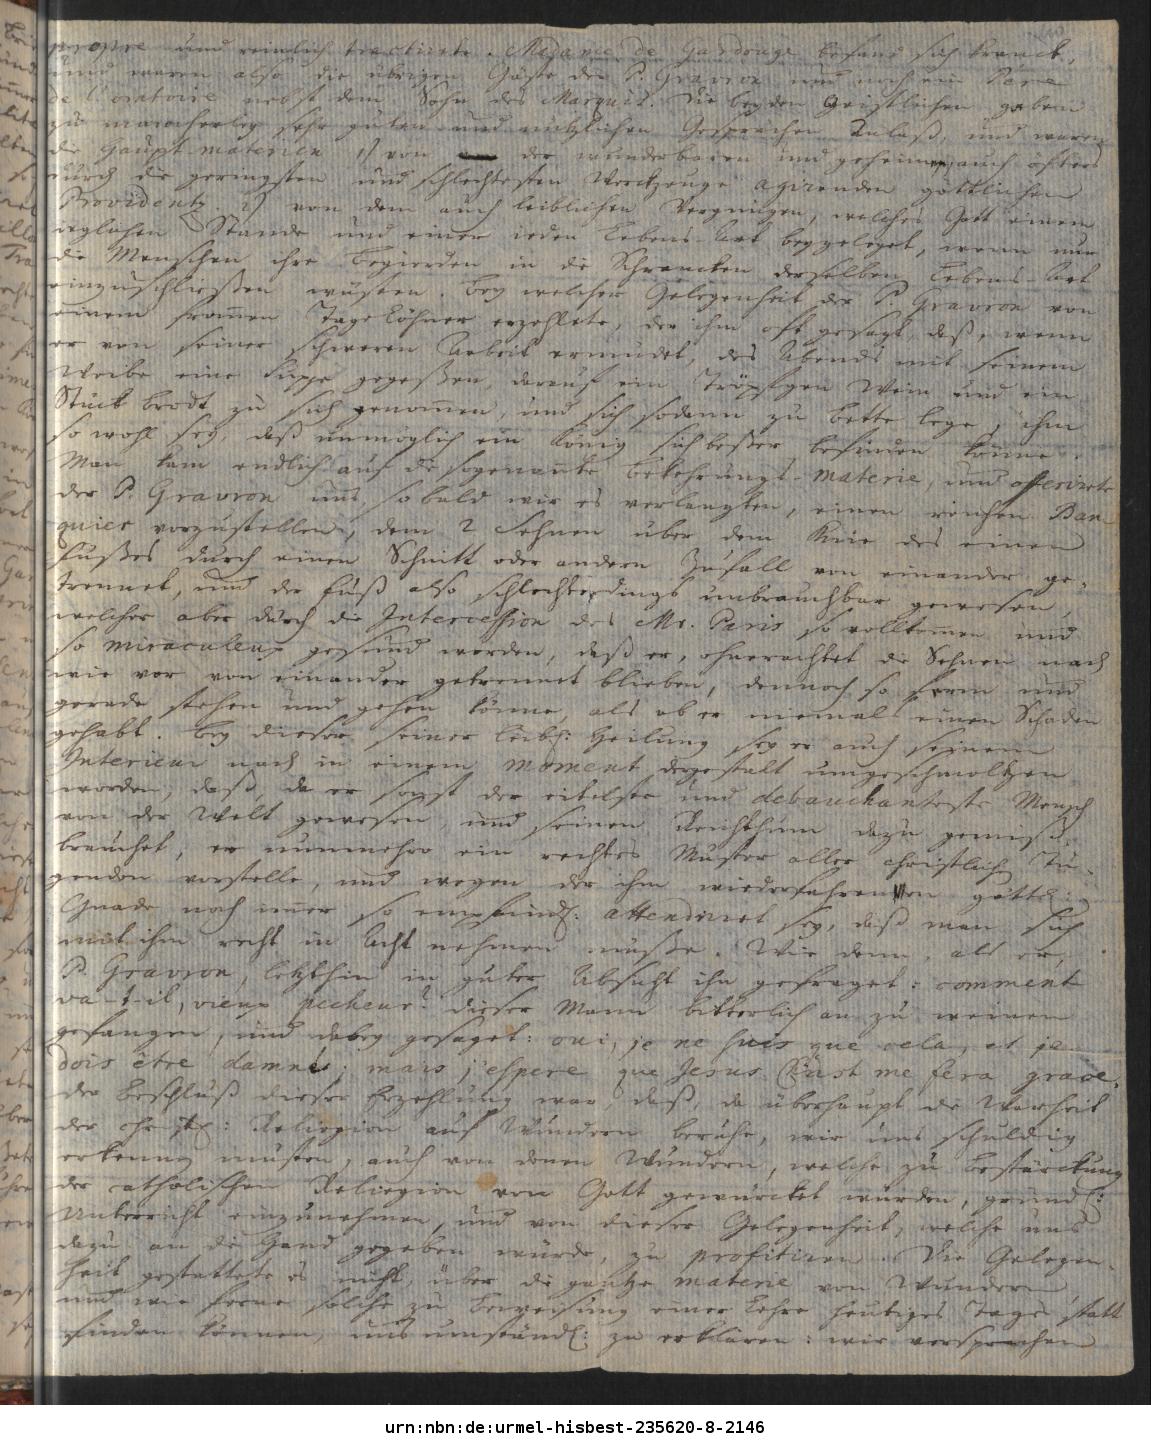 propre und reinlich tractirte. Madame de Gardouge befand sich kranck,
und waren also die übrigen Gäste der P. Gravron und noch ein Père
de l'oratoire nebst dem Sohn des Marquis. Die beyden Geistlichen gaben
zu mancherley sehr guten und nützlichen Gesprächen Anlaß, und waren
die Haupt-materien 1) von der wunderbaren und geheimen, auch öfters
durch die geringsten und schlechtesten Werckzeuge agirenden göttlichen
Providentz. 2) von dem auch leiblichen Vergnügen, welches Gott einem
ieglichen Stande und einer ieden Lebens-Art beygeleget, wenn nur
die Menschen ihre Begierden in die Schrancken derselben Lebens-Art
einzuschließen wüsten. Bey welcher Gelegenheit der P. Gravron von
einem frommen Tagelöhner erzehlete, der ihm oft gesagt, daß, wenn
er von seiner schweren Arbeit ermüdet, des Abends mit seinem
Weibe eine Suppe gegeßen, darauf ein Tröpfgen Wein und ein
Stück brodt zu sich genommen, und sich sodann zu bette lege, ihm
so wohl sey, daß unmöglich ein König sich beßer befinden könne.
Man kam endlich auf die sogenannte bekehrungs-materie, und offerirte
der P. Gravron uns, so bald wir es verlangten, einen reichen Ban-
quier vorzustellen, dem 2 Sehnen über dem Knie des einen
Fußes durch einen Schnitt oder andern Zufall von einander ge-
trennet, und der Fuß also schlechterdings unbrauchbar gewesen,
welcher aber durch die Intercession des Mr. Paris so vollkommen und
so miraculeux gesund worden, daß er, ohnerachtet die Sehnen nach
wie vor von einander getrennet blieben, dennoch so ferm und
gerade stehen und gehen könne, als ob er niemals einen Schaden
gehabt. Bey dieser seiner leibl: Heilung sey er auch seinem
Interieur nach in einem moment dergestalt umgeschmoltzen
worden, daß, da er sonst der eitelste und debauchanteste Mensch
von der Welt gewesen, und seinen Reichthum dazu gemiß-
brauchet, er nunmehro ein rechtes Muster aller christlich Tu-
genden vorstelle, und wegen der ihm wiederfahrenen göttl:
Gnade noch immer so empfindl: attendriret sey, daß man sich
mit ihm recht in Acht nehmen müsse. Wie denn, als er,
P. Gravron, letzthin in guter Absicht ihn gefraget: comment
va-t-il, vieux pecheur? dieser Mann bitterlich an zu weinen
gefangen, und dabey gesaget: oui, je ne suis que cela, et je
dois être damné; mais j'espere que Jesus Christ me fera grace.
Der Beschluß dieser Erzehlung war, daß, da überhaupt die Warheit
der christl: Religion auf Wundern beruhe, wir uns schuldig
erkennen müsten, auch von denen Wundern, welche zu Bestärckung
der catholischen Religion von Gott gewürcket würden, gründl:
Unterricht einzunehmen, und von dieser Gelegenheit, welche uns
dazu an die Hand gegeben würde, zu profitiren. Die Gelegen-
heit gestattete es nicht, über die gantze materie von Wundern,
und wie ferne solche zu Beweisung einer Lehre heutiges Tages statt
finden können, uns umständl: zu erklären: wir versprachen
urn:nbn:de:urmel-hisbest-235620-8-2146